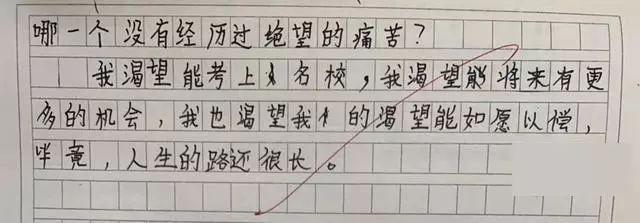 哪一个没有经历过绝望的痛苦？
我渴望能考上名校，我渴望能将来有更
多的机会，我也渴望我的渴望能如愿以偿，
毕竟，人生的路还很长。